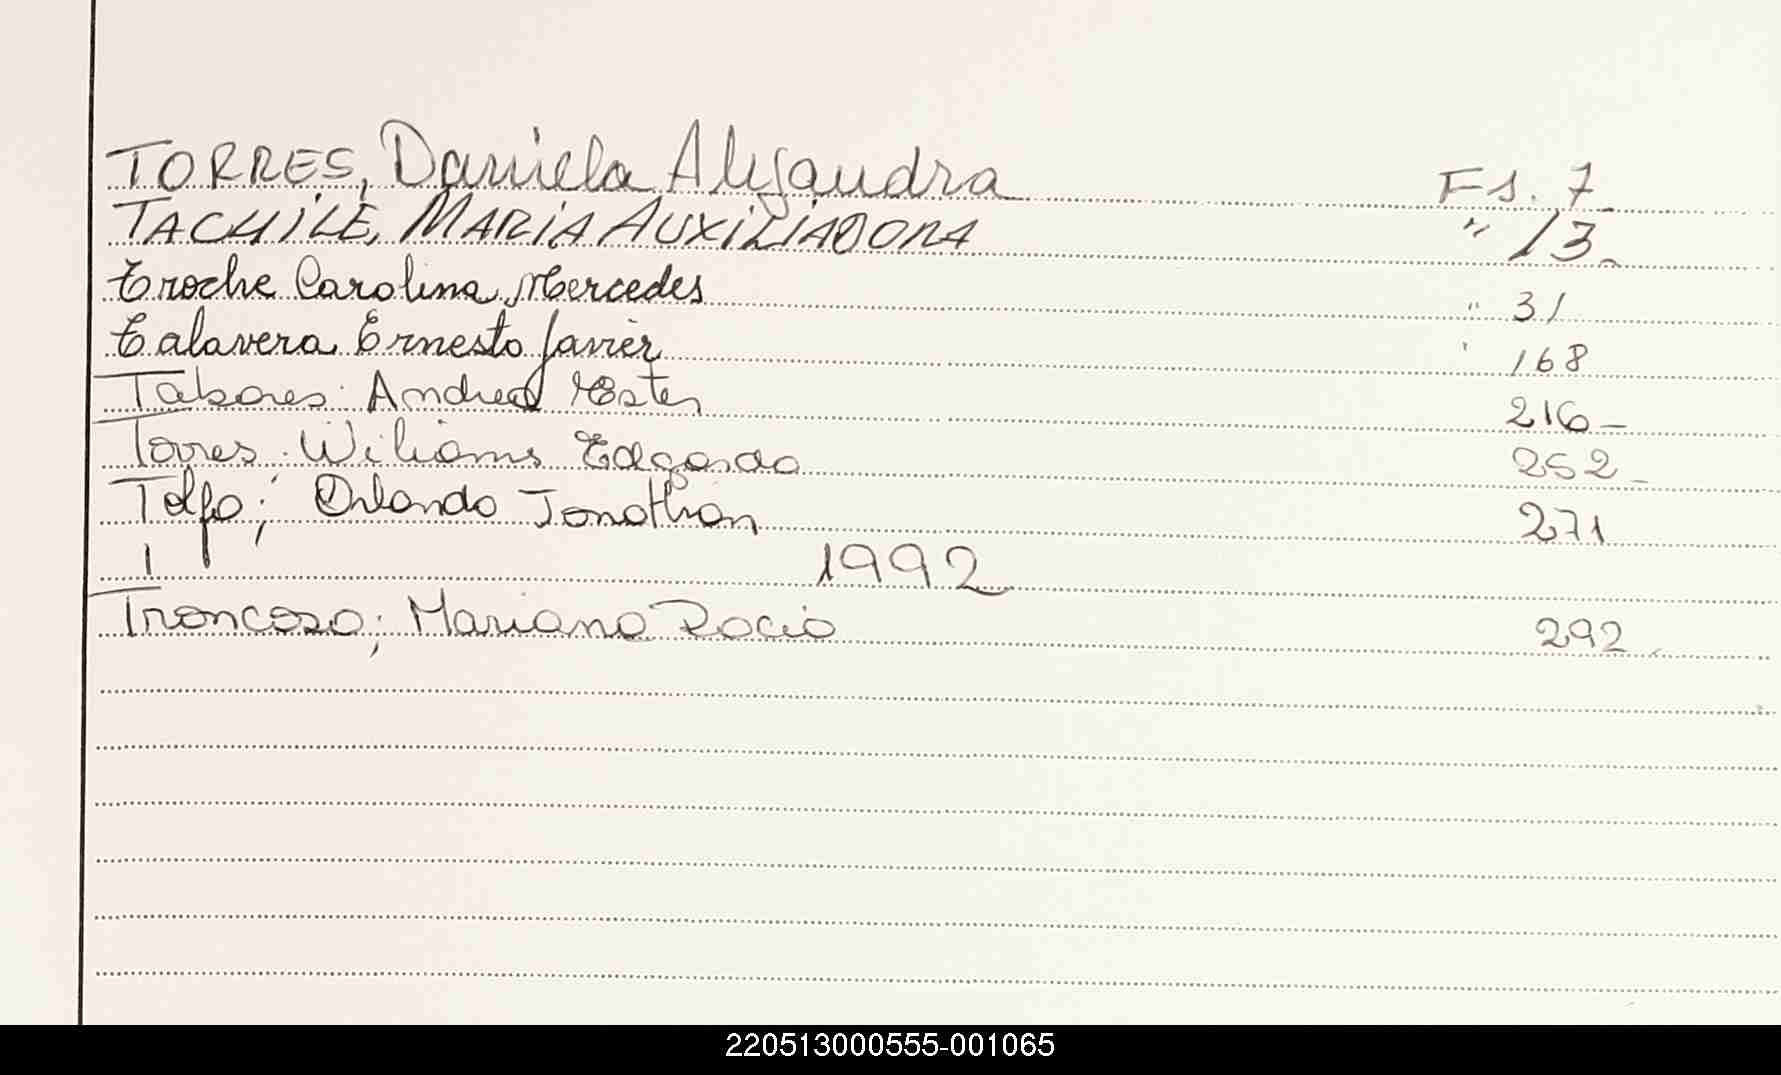 TORRES, Daniela Alejandra Fs. 7
TACHILE, MARIA AUXILIADORA " 13
Troche Carolina Mercedes " 31
Talavera Ernesto Javier ' 168
Tabares Andrea Ester 216
Torres Wiliams Edgardo 252
Telfo; Orlando Jonathan 271
1992
Troncoso; Mariano Rocio 292
220513000555-001065